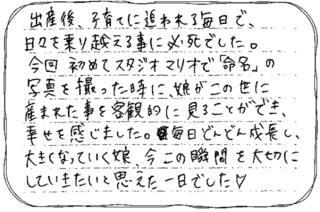 出産後、子育てに追われる毎日で、
日々を乗り越える事に必死でした。
今回 初めてスタジオマリオで「命名」の
写真を撮った時に、娘がこの世に
産まれた事を客観的に見ることができ、
幸せを感じました。毎日どんどん成長し、
大きくなっていく娘、今この瞬間を大切に
していきたいと思えた一日でした♡